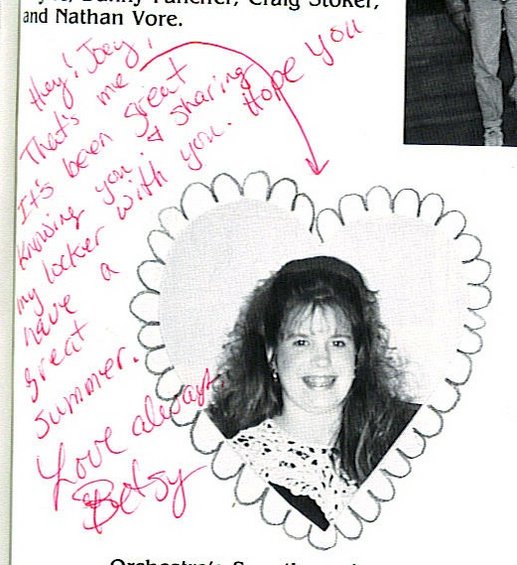 Danny Fancher, Craig Stoker,
and Nathan Vore.
Hey! Joey,
That's me
It's been great
knowing you & sharing
my locker with you. Hope you
have a
great
summer.
Love always
Betsy